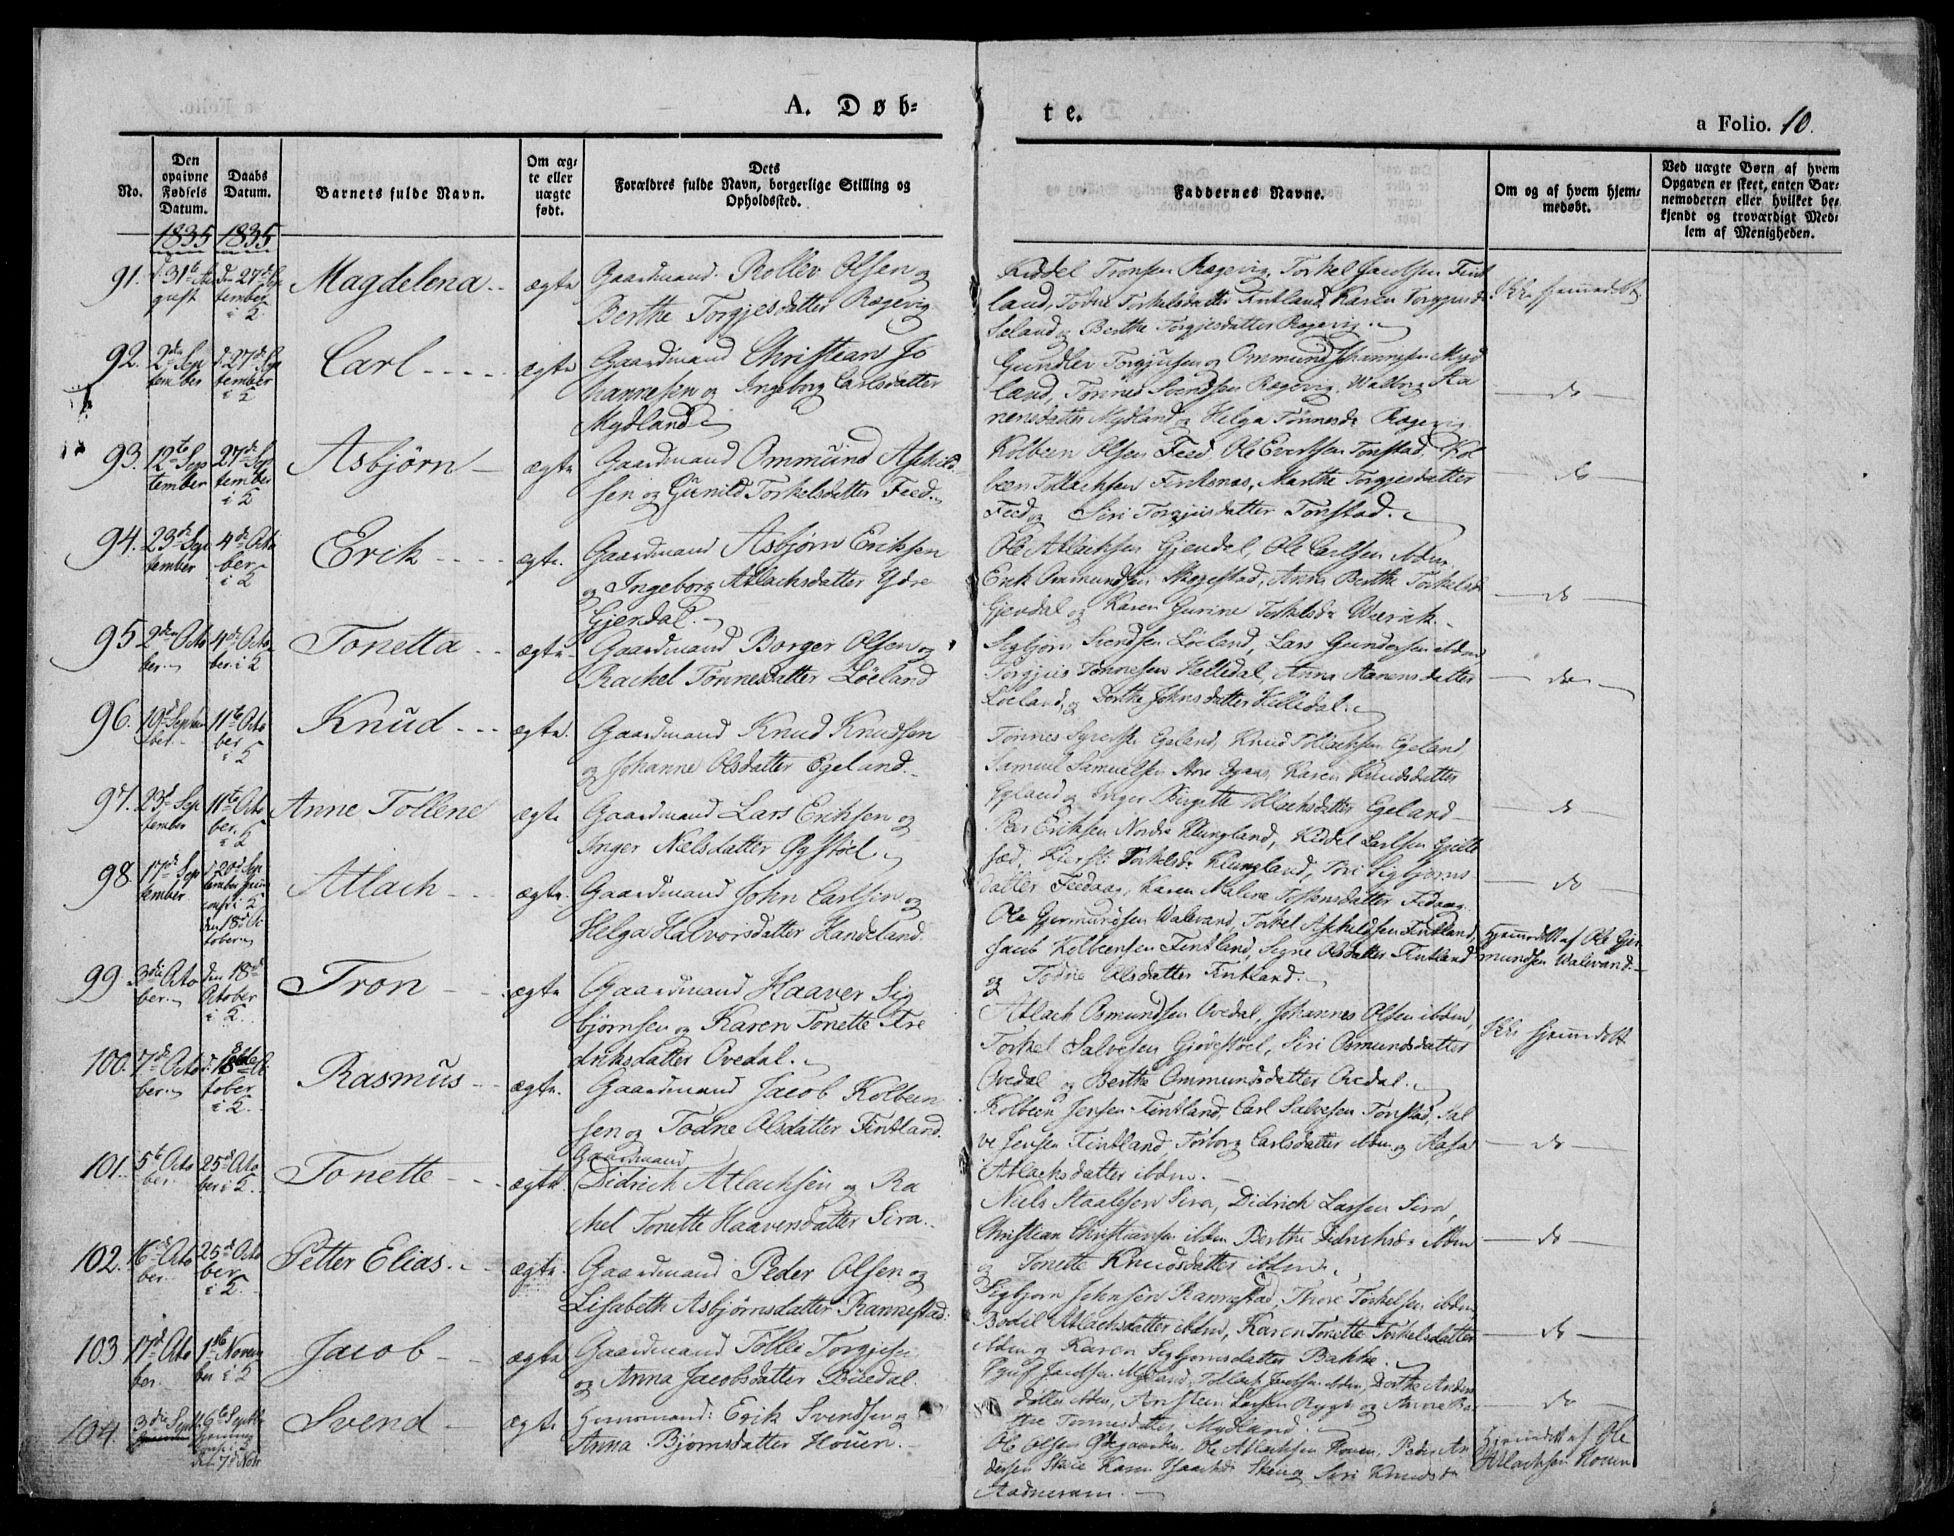 A. Døb-
te.
a Folio. 10.
No.
Den
opgivne
Fødsels
Datum.
Daabs
Datum.
Barnets fulde Navn.
Om æg-
te eller
uægte
født.
Dets
Forældres fulde Navn, borgerlige Stilling og
Opholdssted.
Faddernes Navne.
Om og af hvem hjem-
medøbt.
Ved uægte Børn af hvem
Opgaven er skeet, enten Bar-
nemoderen eller hvilket be-
kjendt og troværdigt Med-
lem af Menigheden.
1835 1835
91. d. 31te Au
gust
d. 27de Sep
tember
i K
Magdelena
ægte
Gaardmand Rollev Olsen og
Berthe Torgjesdatter Rægevig
Kiddel Tronsen Rægevig, Torkel Jacobsen Fint
land, Todne Torkelsdatter Fintland, Karen
Seland og Berthe Torgjesdatter Rægevig
Ikke hjemmedøbt
92. 2den Sep
tember
d. 27de Sep
tember
i K
Carl
ægte
Gaardmand Christian Jo
hannesen og Ingeborg Carlsdatter
Mydland
Gundlev Torgjusen og Ommund Johannesen Myd
land, Tønnes Svendsen Rægevig, Walborg Aa
nensdatter Mydland og Helga Tønnesd: Rægevig
do
93. 12te Sep
tember
27de Sep
tember
i K
Asbjørn
ægte
Gaardmand Ommund Askild
sen og Gunild Torkelsdatter Feed
Kolbeen Olsen Feed, Ole Evertsen Tonstad, Kol
been Tollachsen Finkenæs, Marthe Torgjesdatter
Feed og Siri Torgjusdatter Tonstad.
do
94. 23de Sep
tember
4de Octo
ber
i K
Erik
ægte.
Gaardmand Asbjørn Eriksen
og Ingeborg Atlachsdatter Ydre
Gjerdal.
Ole Atlachsen Gjerdal, Ole Carlsen ibden,
Erik Ommundsen Skogestad, Anna Berthe Torkelsd:
Gjerdal og Karen Gurine Torkelsd:
do
95 2den Octo
ber
4de Octo
ber i K
Tonetta
ægte
Gaardmand Borger Olsen og
Rachel Tønnesdatter Løeland
Sigbjørn Svendsen Løeland, Lars Gundersen ibden,
Torgius Tønnesen Helledal, Anna Aanensdatter
Løeland, og Dorthe Johnsdatter Helledal.
do
96. 19de Septem
ber
11te Octo
ber
i K
Knud
ægte.
Gaardmand Knud Knudsen
og Johanne Olsdatter Egeland.
Tønnes Egeland, Knud Tollachsen Egeland
Samuel Samuelsen Karen Knudsdatter
Egeland og Inger Birgitte Tollachsdatter Egeland
do
97. 23de Sep
tember
11te Octo
ber.
i K
Anne Tollene
ægte
Gaardmand Lars Eriksen og
Inger Nielsdatter Øystøel
Peer Eriksen Nordre Klungland, Kiddel Carlsen
Kirsti Torkelsd: Klungland, Siri Sigbjørns
datter Feedaas, Karen Malene datter Fedaas
do
98 17de Sep
tember
d 20de Sep
tember
conf: i K
den 18de Oc
tober
Atlach
ægte.
Gaardmand John Carlsen og
Helga Halvorsdatter Handeland
Ole Gjermundsen Walevand, Torkel Askildsen Fintland,
Jacob Kolbeensen Fintland, Segne Olsdatter Fintland
og Todne Olsdatter Fintland.
Hjemmedøbt af Ole Gjer
mundsen Walevand.
99. 3die Octo
ber
den 18de
October
i K.
Tron
ægte
Gaardmand Haaver Sig
bjørnsen og Karen Tonette Fre
driksdatter Ovedal.
Atlach Osmundsen Ovedal, Johannes Olsen ibden,
Torkel Salvesen Gjøvestøel, Siri Osmundsdatter
Ovedal og Berthe Ommundsdatter Ovedal.
Ikke hjemmedøbt
100. 7de Octo
ber
d. 18de Oc
tober
i K.
Rasmus
ægte.
Gaardmand Jacob Kolbeen
sen og Todne Olsdatter Fintland.
Kolbeen Jensen Fintland, Carl Salvesen Tonstad, Sal
ve Jensen Fintland, Tørborg Carlsdatter ibden og Aasa
Atlachsdatter ibden.
do
101. 5te Octo
ber.
25de Octo
ber i K.
Tonette
ægte.
Gaardmand
Didrich Atlachsen og Ra
chel Tonette Haaversdatter Sira.
Niels Staalesen Sira, Didrich Larsen Sira,
Christian Christiansen ibden, Berthe Didrichsd: ibden
og Tonette Knudsdatter ibden.
do
102. 6te Octo
ber.
25de Octo
ber
i K.
Petter Elias.
ægte.
Gaardmand Peder Olsen og
Lisabeth Asbjørnsdatter Rannestad:
Sigbjørn Johnsen Rannestad, Thore Torkelsen ibden,
Bodil Atlachsdatter ibden, Karen Tonette Torkelsdatter
ibden og Karen Sigbjørnsdatter Bakke.
do
103 17de Octo
ber
1ste Novem
ber i K
Jacob
ægte
Gaardmand Tolli Torgjusen
og Anna Jacobsdatter Büedal
Jacobsen Mydland, Tollach Jacobsen ibden, Dorthe Anders
datter ibden, Larsen og Anne
Tønnesdatter Mydland.
do
104. 3die Septb.
6te Septbr.
conf: i K
d. 7de Nov.
Svend
ægte.
Huusmand: Erik Svendsen og
Anna Bjørnsdatter Houen.
Ole Olsen Ødegaarden, Ole Atlachsen Houen, Peder An
dersen Karen og Siri Knudsd:
Aadneram.
Hjemmedøbt af Ole
Atlachsen Houen